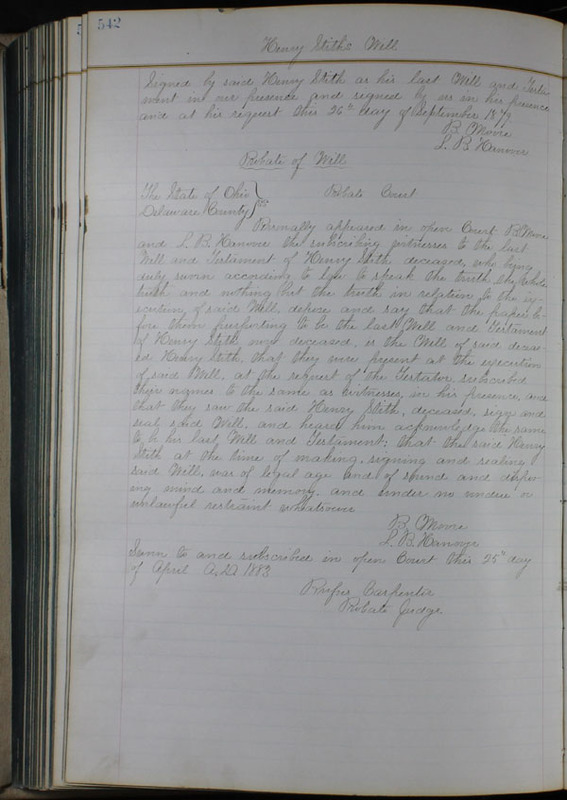 542
Henry Stith's Will
Signed by said Henry Stith as his last Will and Testa-
ment in our presence and signed by us in his presence
and at his request this 26th day of September 1879
B. C. Moore
L. B. Hanover
Probate of Will
The State of Ohio } Probate Court
Delaware County } ss
Personally appeared in open Court B. Moore
and L. B. Hanover the subscribing witnesses to the last
Will and Testament of Henry Stith, deceased, who being
duly sworn according to law to speak the truth the whole
truth and nothing but the truth in relation to the ex-
ecution of said Will, depose and say that the paper be-
fore them purporting to be the last Will and Testament
of Henry Stith now deceased, is the Will of said deceas-
ed Henry Stith, that they were present at the execution
of said Will, at the request of the Testator, subscribed
their names to the same as witnesses, in his presence, and
that they saw the said Henry Stith, deceased, sign and
seal said Will, and heard him acknowledge the same
to be his last Will and Testament; that the said Henry
Stith at the time of making, signing and sealing
said Will, was of legal age and of sound and dispos-
ing mind and memory and under no undue or
unlawful restraint whatsoever
B. C. Moore
L. B. Hanover
Sworn to and subscribed in open Court this 25th day
of April A.D. 1883
Rufus Carpenter
Probate Judge